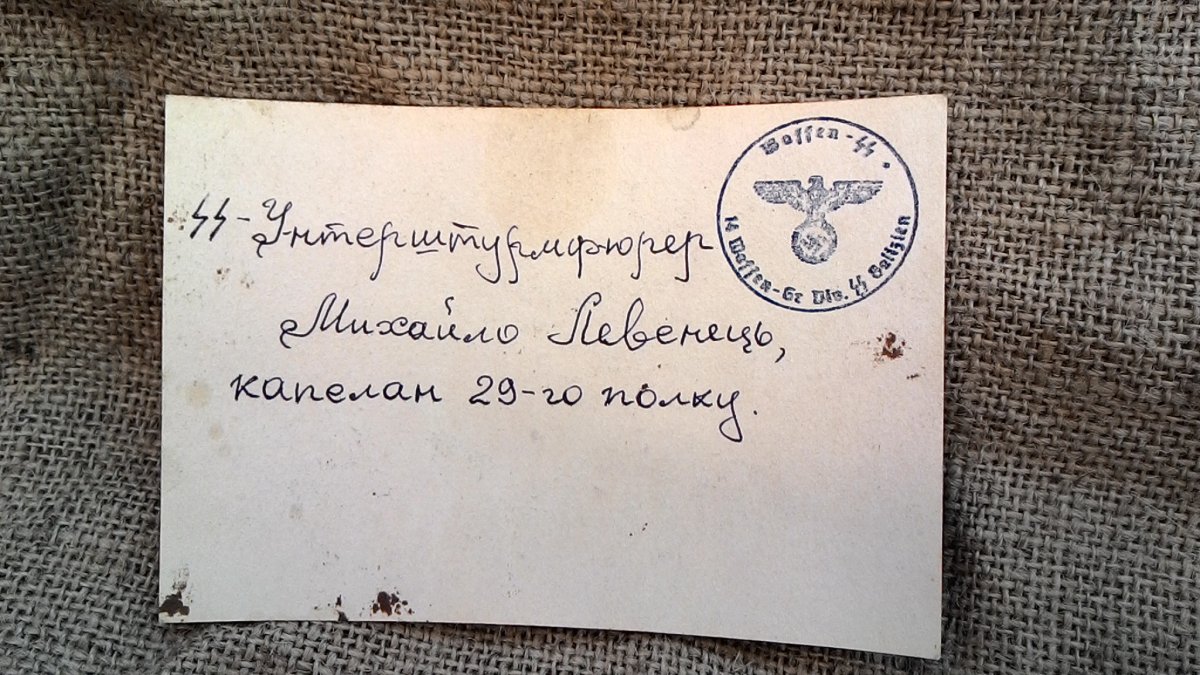 Waffen-SS
14 Waffen-Gr Div. SS Galizien
SS-Унтерштурмфюрер
Михайло Левенець,
капелан 29-го полку.